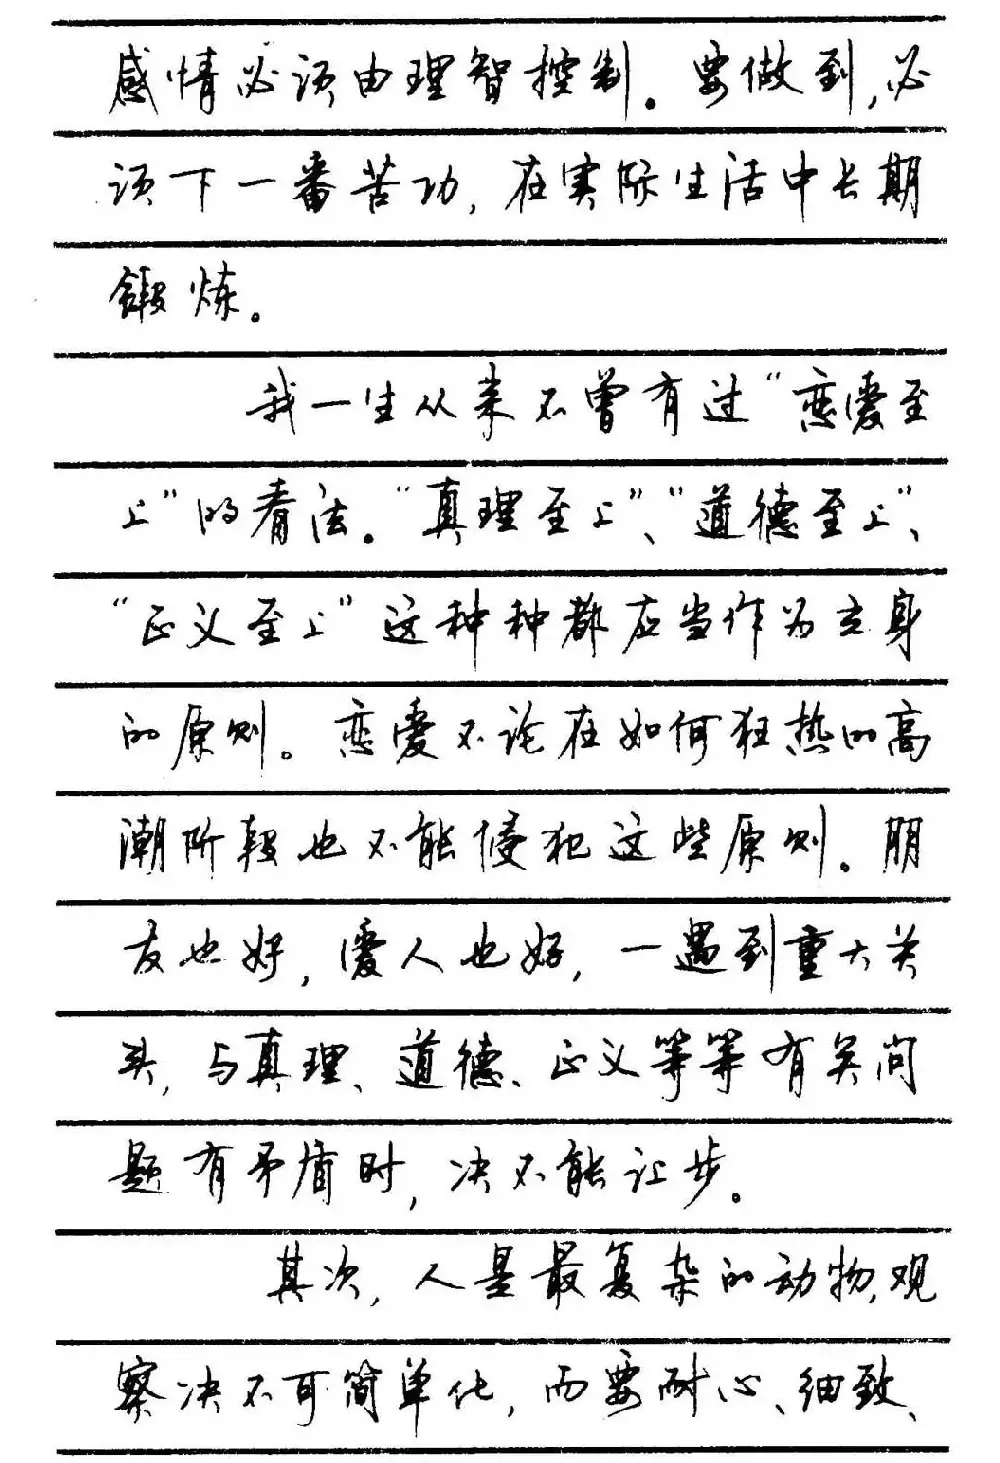 感情必须由理智控制。要做到,必
须下一番苦功,在实际生活中长期
锻炼。
我一生从来不曾有过“恋爱至
上”的看法。“真理至上”、“道德至上”、
“正义至上”这种种都应当作为立身
的原则。恋爱不论在如何狂热的高
潮阶段也不能侵犯这些原则。朋
友也好,爱人也好,一遇到重大关
头,与真理、道德、正义等等有关问
题有矛盾时,决不能让步。
其次,人是最复杂的动物,观
察决不可简单化,而要耐心、细致、